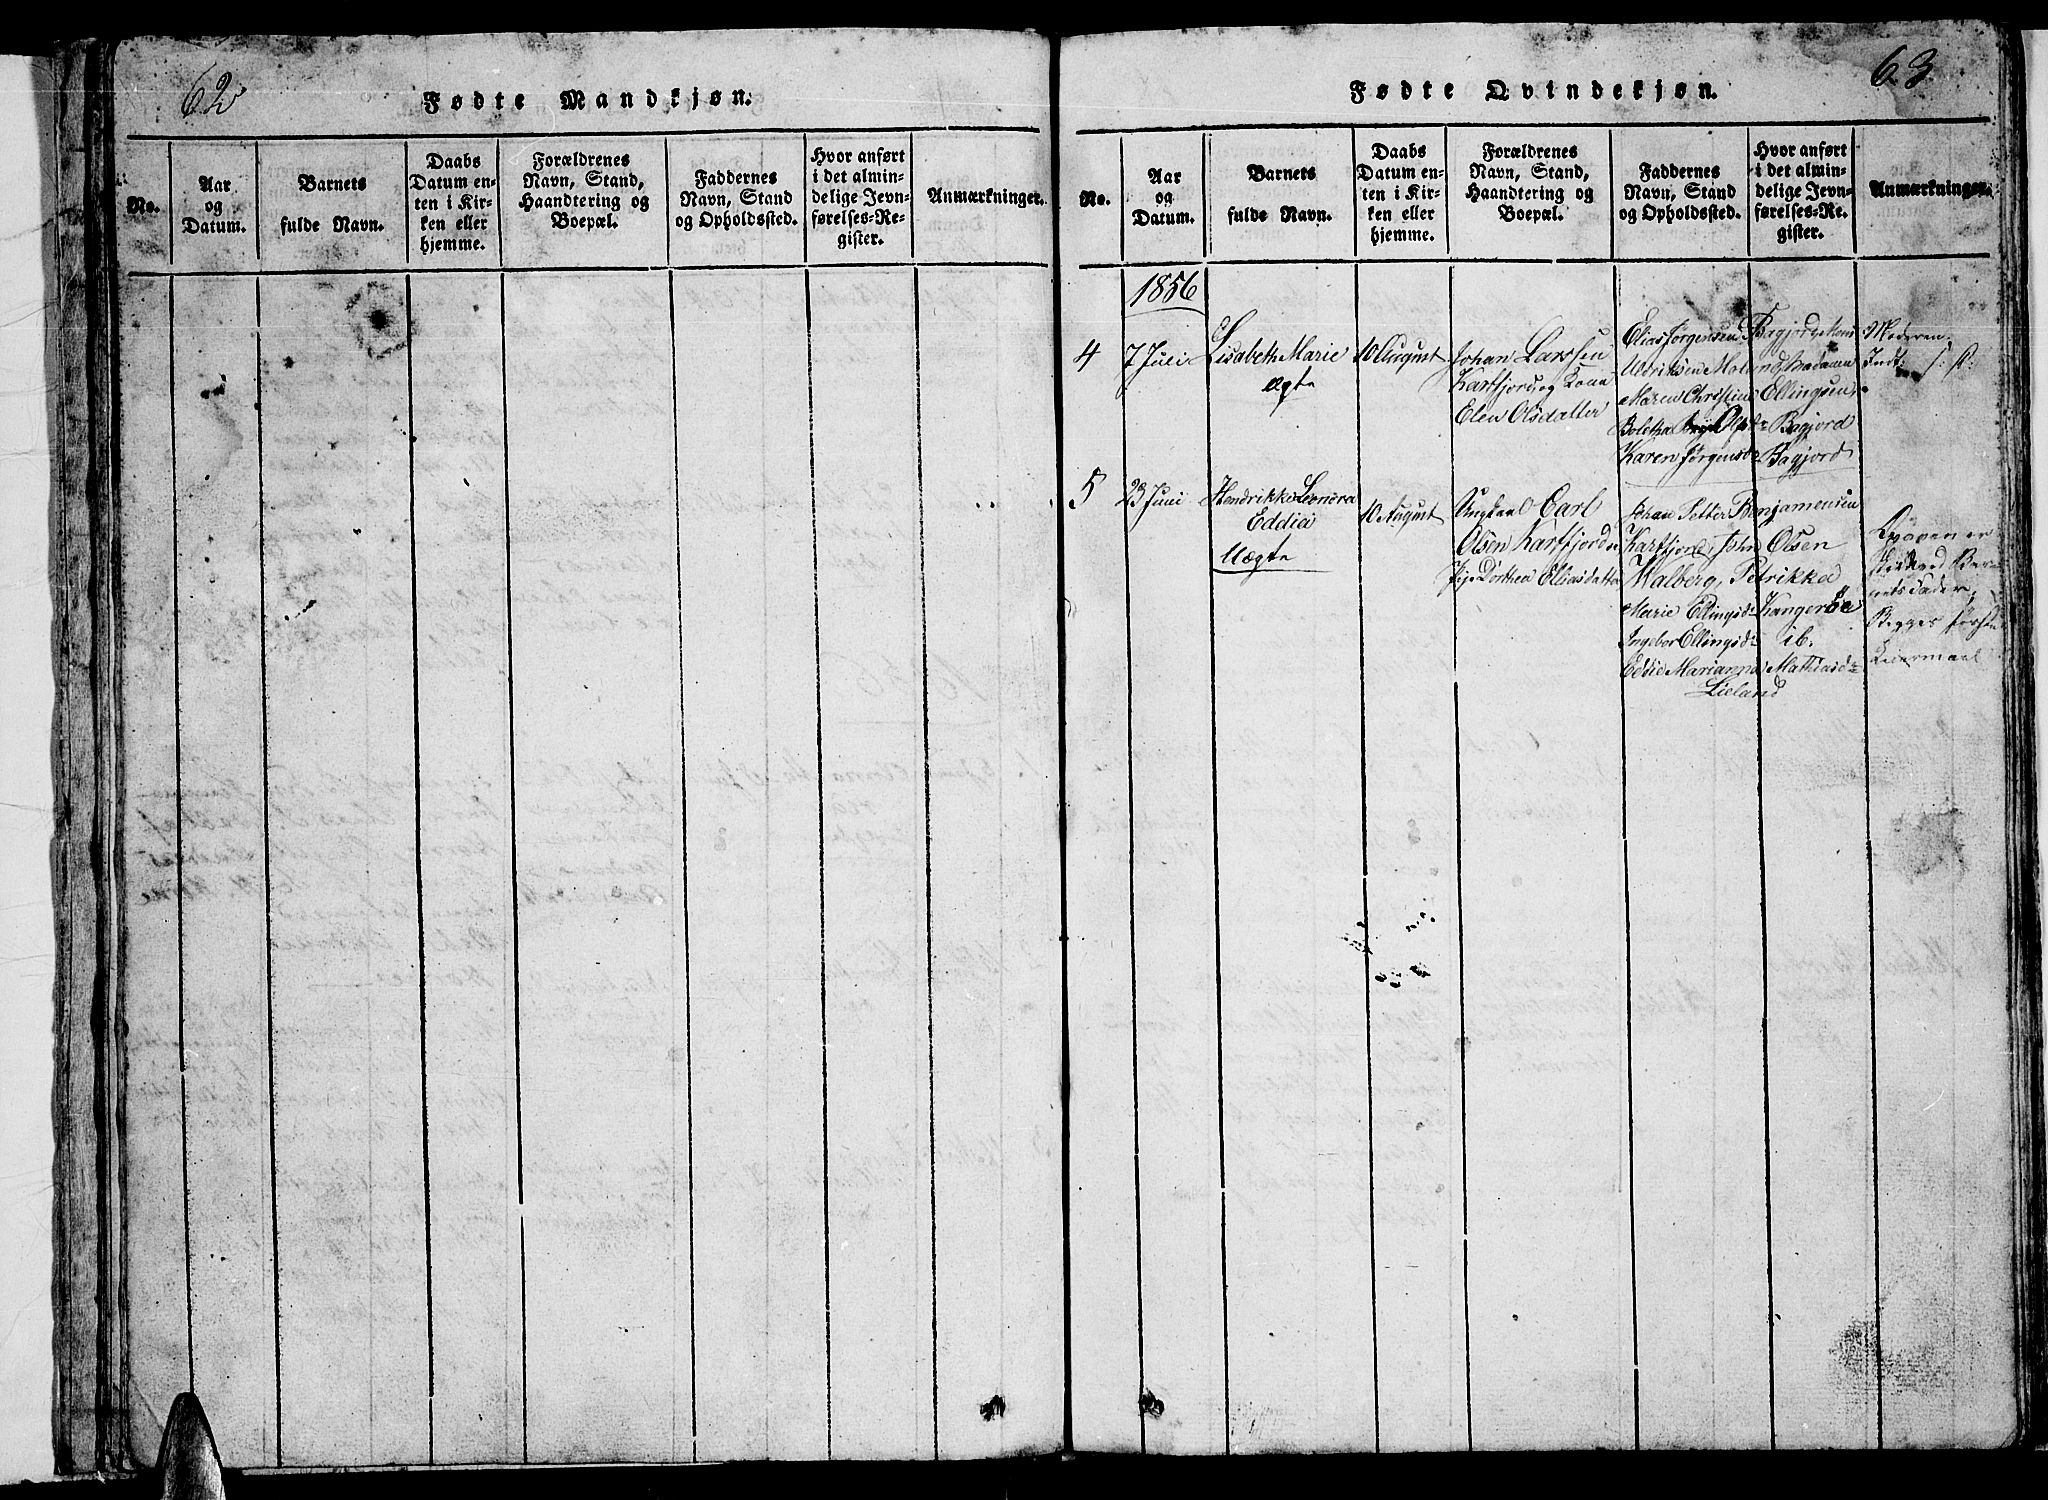 62
Fødte Mandkjøn.
No.
Aar
og
Datum.
Barnets
fulde Navn.
Daabs
Datum en-
ten i Kir-
ken eller
hjemme.
Forældrenes
Navn, Stand,
Haandtering og
Boepæl.
Faddernes
Navn, Stand
og Opholdssted.
Hvor anført
i det almin-
delige Jevn-
førelses-Re-
gister.
Anmærkninger.
63
Fødte Qvindekjøn.
No.
Aar
og
Datum.
Barnets
fulde Navn.
Daabs
Datum en-
ten i Kir-
ken eller
hjemme.
Forældrenes
Navn, Stand,
Haandtering og
Boepæl.
Faddernes
Navn, Stand
og Opholdssted.
Hvor anført
i det almin-
delige Jevn-
førelses-Re-
gister.
Anmærkninger.
1856
4
7 Juli
Lisabeth Marie
Ægte
10 August
Johan Larssen
Karffjord og Kone
Elen Olsdatter
Elias Jørgensen
Uldriksen Molund, Madame
Maren Christin Ellingsen,
Boletha Olsd. Bogjord
Karen Jørgensd. Bogjord
Moderen
Indt.
5
23 Juni
Hendrikke Leonora
Eddia
Uægte
10 August
Ungkarl Carl
Olsen Karffjord og
Pige Dorthea Eliasdatter
Johan Petter Benjamensen
Karffjord, John Olsen
Valberg, Petrikka
Marie Ellingsd. Kangerøe
Ingebor Ellingsd. ib.
Eddie Marianna Mathiasd.
Lieland
er
ved Bar-
nets Fader,
Begges første
Leiermaal